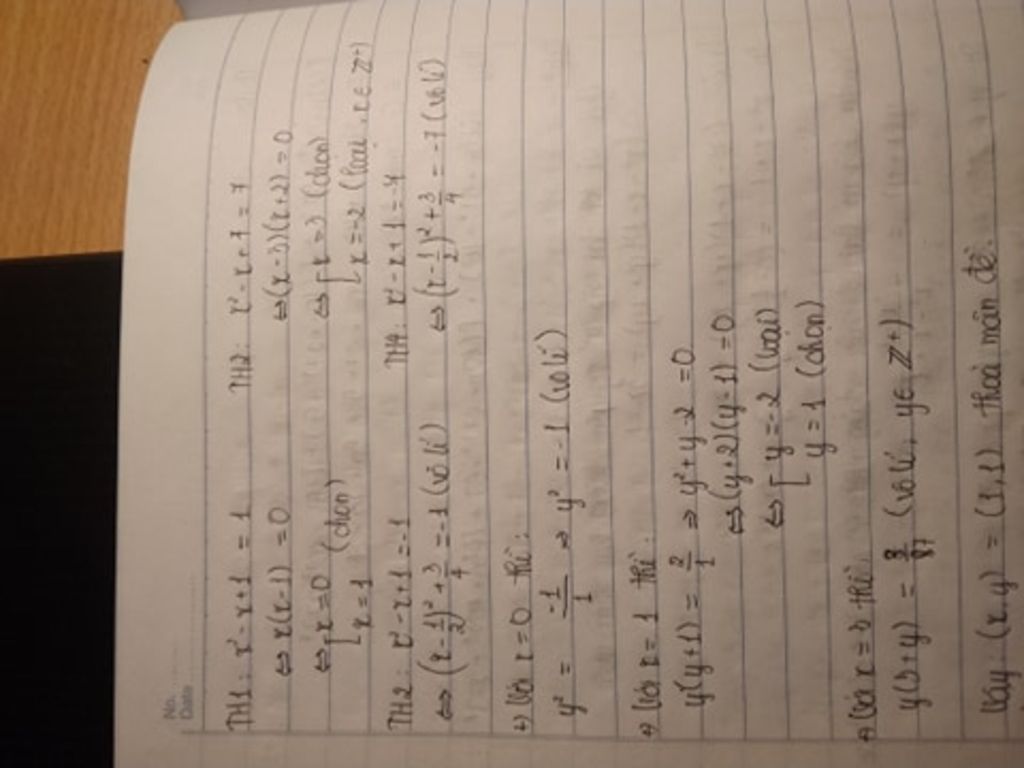 No.
Date
TH1: x² - x + 1 = 1
⇔ x(x-1) = 0
⇔ [ x = 0
x = 1 (chọn)
TH2: x² - x + 1 = 7
⇔ (x-3)(x+2) = 0
⇔ [ x = 3 (chọn)
x = -2 (loại, x ∈ Z⁺)
TH2: x² - x + 1 = -1
⇔ (x - 1/2)² + 3/4 = -1 (vô lí)
TH4: x² - x + 1 = -7
⇔ (x - 1/2)² + 3/4 = -7 (vô lí)
+) Với x = 0 thì:
y² = -1/1 ⇒ y² = -1 (vô lí)
+) Với x = 1 thì:
y(y+1) = 2/1 ⇒ y² + y - 2 = 0
⇔ (y+2)(y-1) = 0
⇔ [ y = -2 (loại)
y = 1 (chọn)
+) Với x = 3 thì:
y(3+y) = (vô lí, y ∈ Z⁺)
Vậy (x,y) = (1,1) thoả mãn đề.